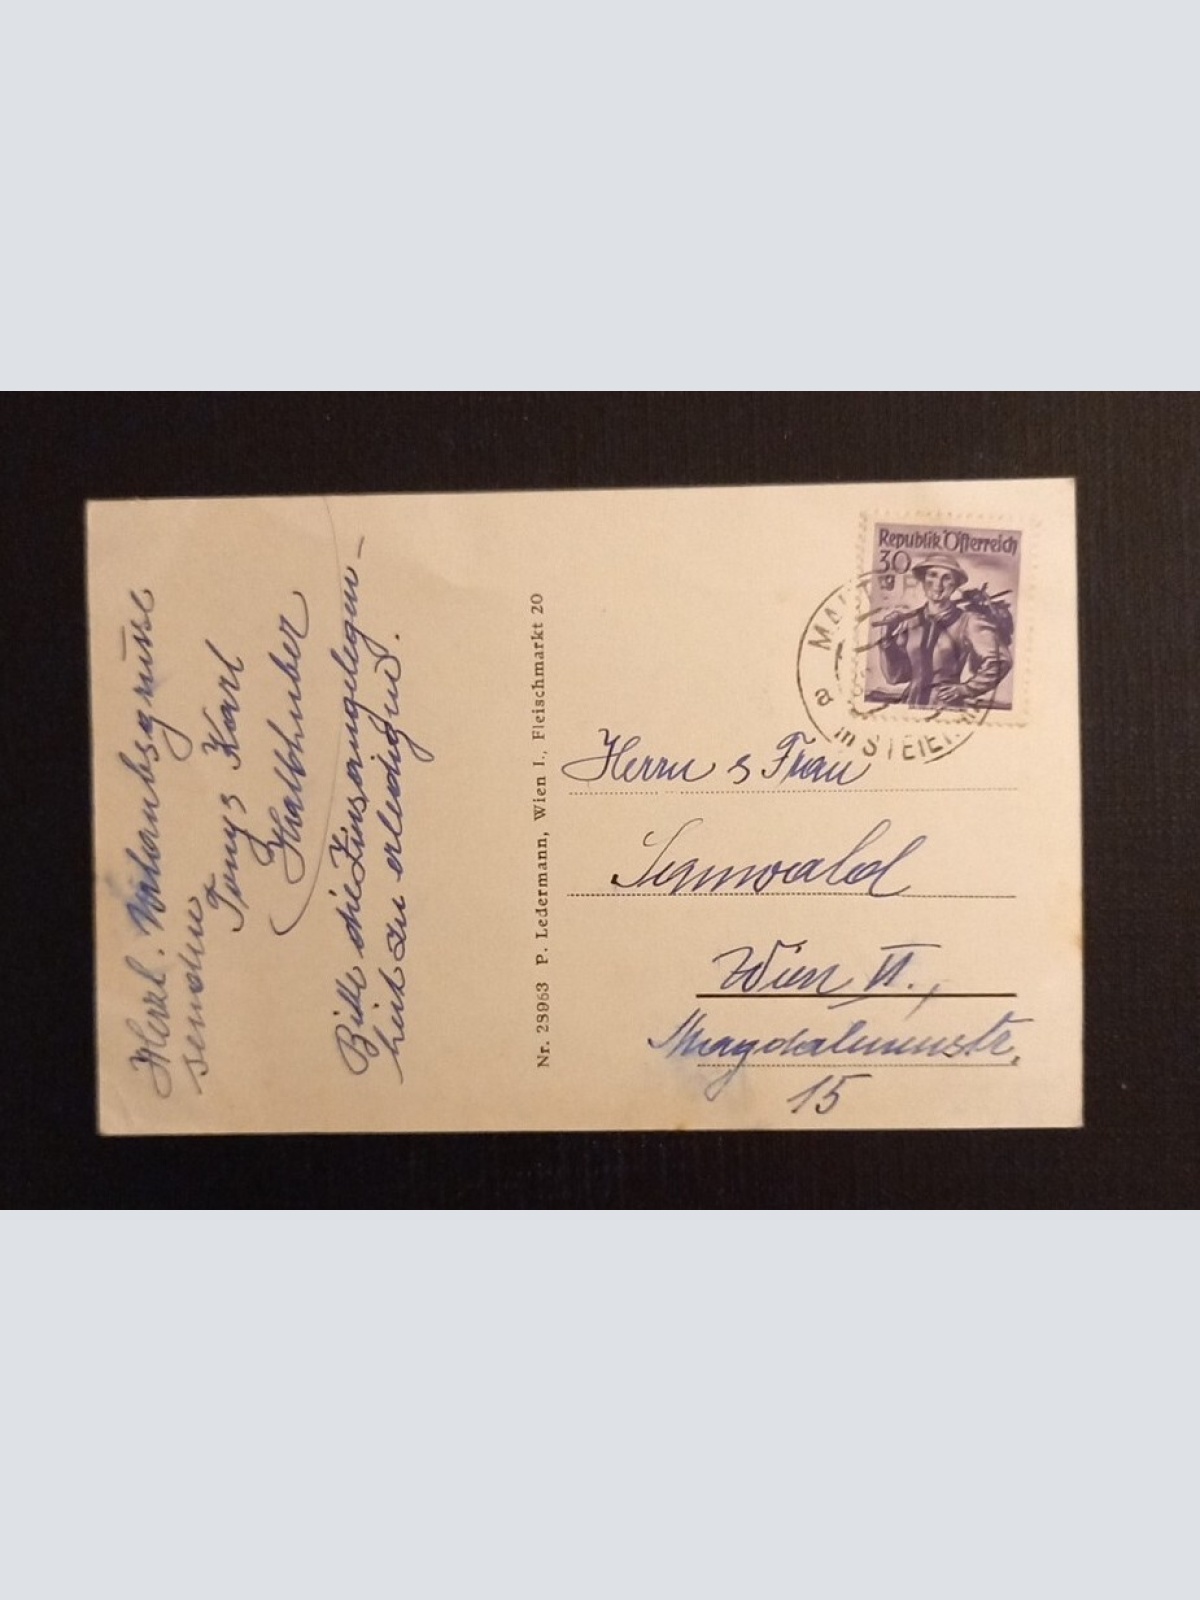 Herzl. Urlaubsgrüsse
senden
Tonys Karl
Halbhuber
Bitte die Zinsangelegen-
heit zu erledigen.
Nr. 28963 P. Ledermann, Wien I., Fleischmarkt 20
Republik Österreich
30
a
in STEIER
Herrn s Frau
Wien II.,
Magdalenenstr.
15